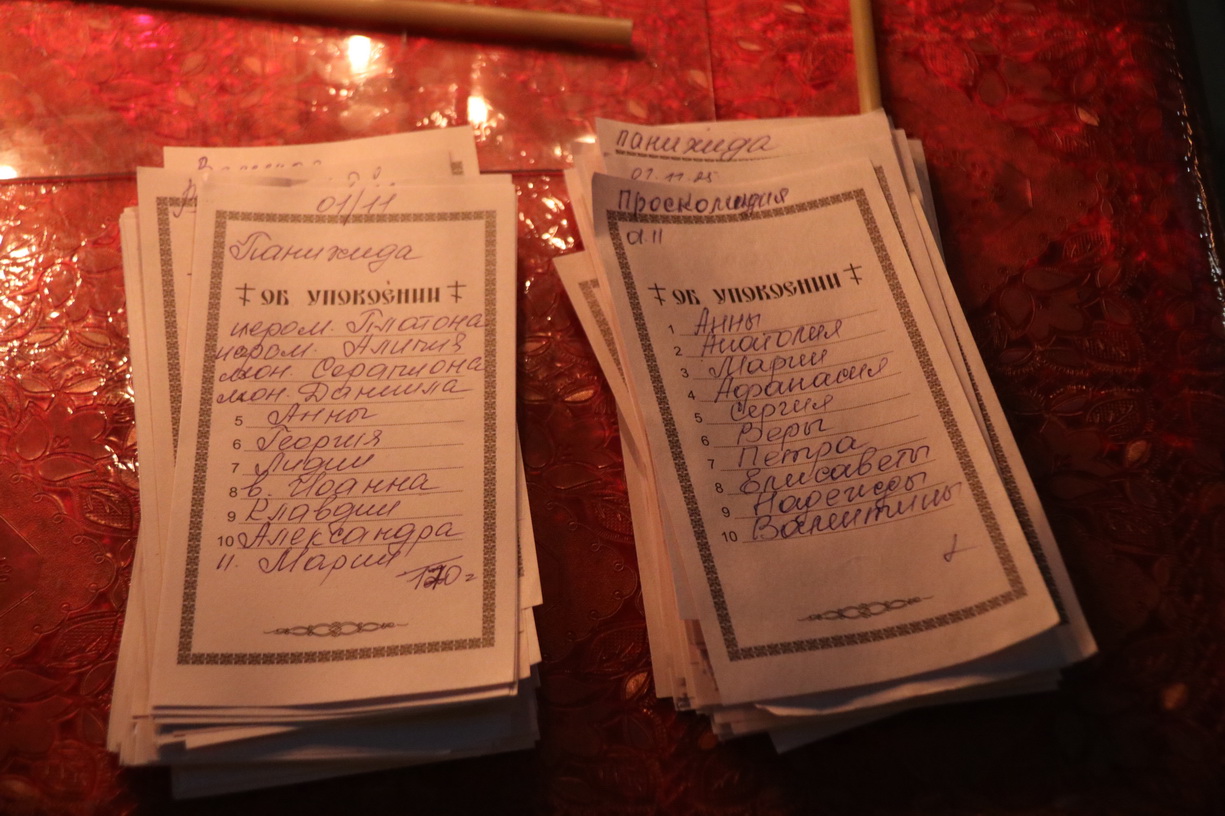 01/11
Панихида
ОБ УПОКОЕНИИ
иером. Платона
иером. Алипия
мон. Серапиона
мон. Даниила
5 Анны
6 Георгия
7 Лидии
8 в. Иоанна
9 Клавдии
10 Александра
11. Марии
панихида
Проскомидия
01.11
ОБ УПОКОЕНИИ
1 Анны
2 Анатолия
3 Марии
4 Афанасия
5 Сергия
6 Веры
7 Петра
8 Елисаветы
9 Надежды
10 Валентины